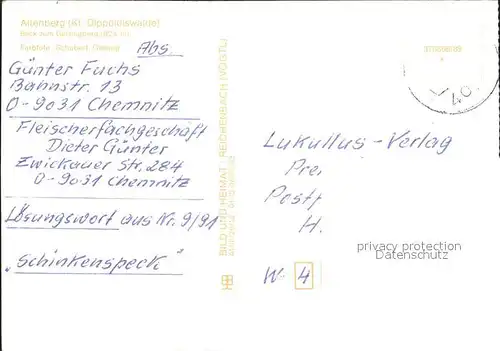 Altenberg (Kr. Dippoldiswalde)
Abs.
Günter Fuchs
Bahnstr. 13
O-9031 Chemnitz
Fleischerfachgeschäft
Dieter Günter
Zwickauer Str. 284
O-9031 Chemnitz
Lösungswort aus Nr. 9/91
„Schinkenspeck"
BILD UND HEIMAT REICHENBACH (VOGTL)
Lukullus-Verlag
Pre
Postf
H.
W- 4
40
privacy protection
Datenschutz